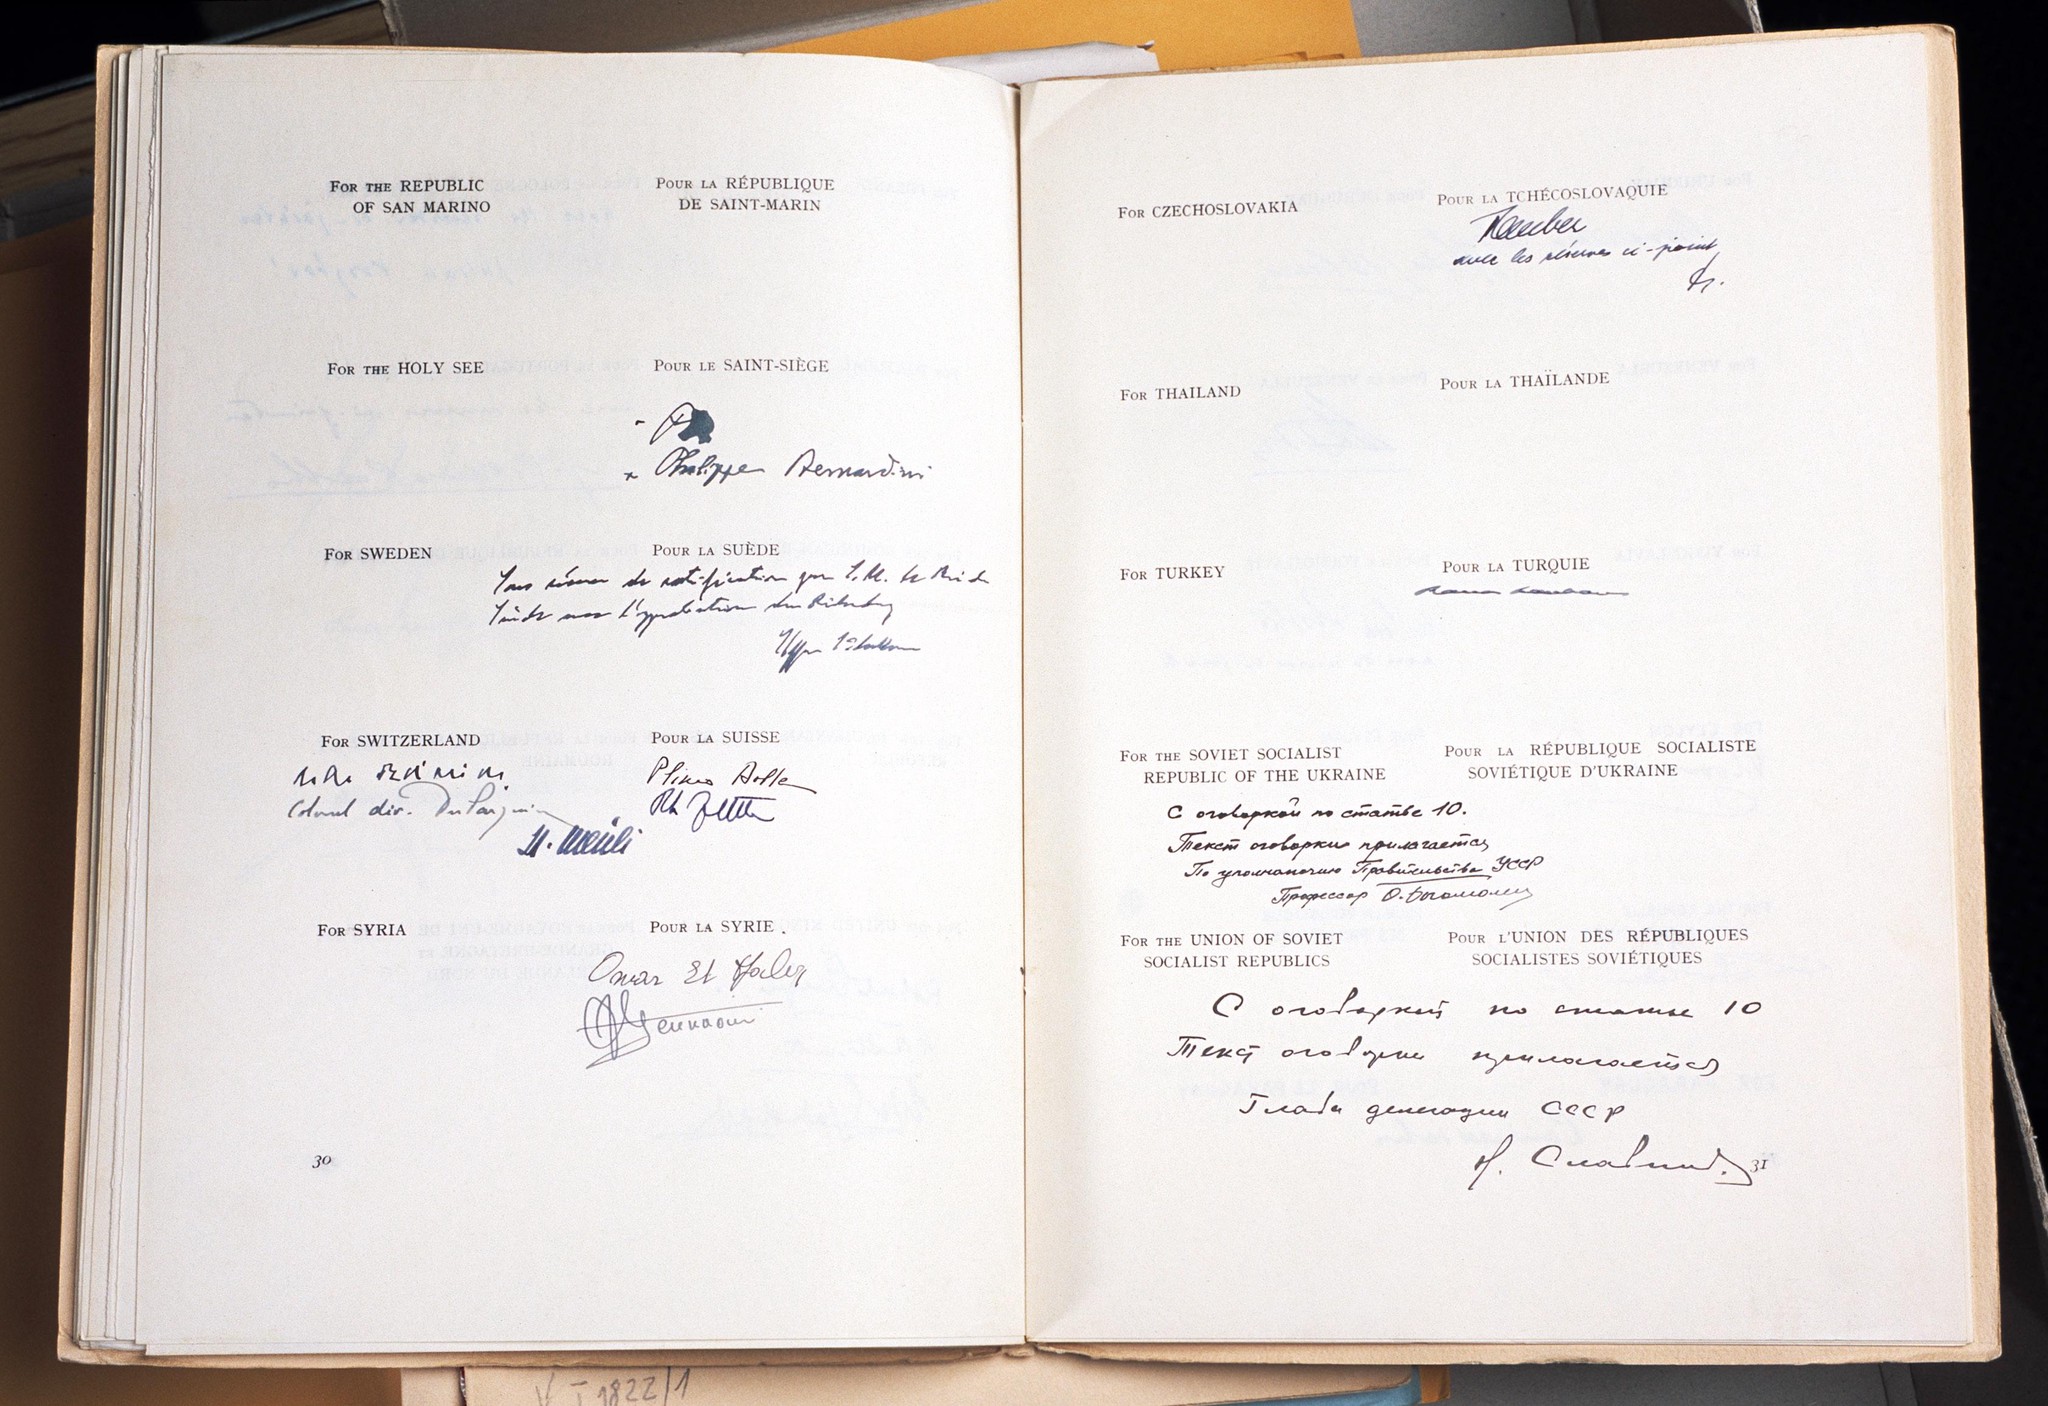 For the REPUBLIC
OF SAN MARINO
Pour la RÉPUBLIQUE
DE SAINT-MARIN
For the HOLY SEE
Pour le SAINT-SIÈGE
Philippe Bernardini
For SWEDEN
Pour la SUÈDE
Sous réserve de ratification par S. M. le Roi de
Suède avec l'approbation du Riksdag
For SWITZERLAND
Pour la SUISSE
Plinio Bolla
Colonel div. Du Pasquier
H. Meuli
For SYRIA
Pour la SYRIE.
Omar El
30
For CZECHOSLOVAKIA
Pour la TCHÉCOSLOVAQUIE
Tauber
avec les réserves ci-joint
T.
For THAILAND
Pour la THAÏLANDE
For TURKEY
Pour la TURQUIE
For the SOVIET SOCIALIST
REPUBLIC OF THE UKRAINE
Pour la RÉPUBLIQUE SOCIALISTE
SOVIÉTIQUE D'UKRAINE
С оговоркой по статье 10.
Текст оговорки прилагается
По уполномочию Правительства УССР
Профессор О. Богомолец
For the UNION OF SOVIET
SOCIALIST REPUBLICS
Pour l'UNION DES RÉPUBLIQUES
SOCIALISTES SOVIÉTIQUES
С оговоркой по статье 10
Текст оговорки прилагается
Глава делегации СССР
Н. Славин
31
V I 1822/1